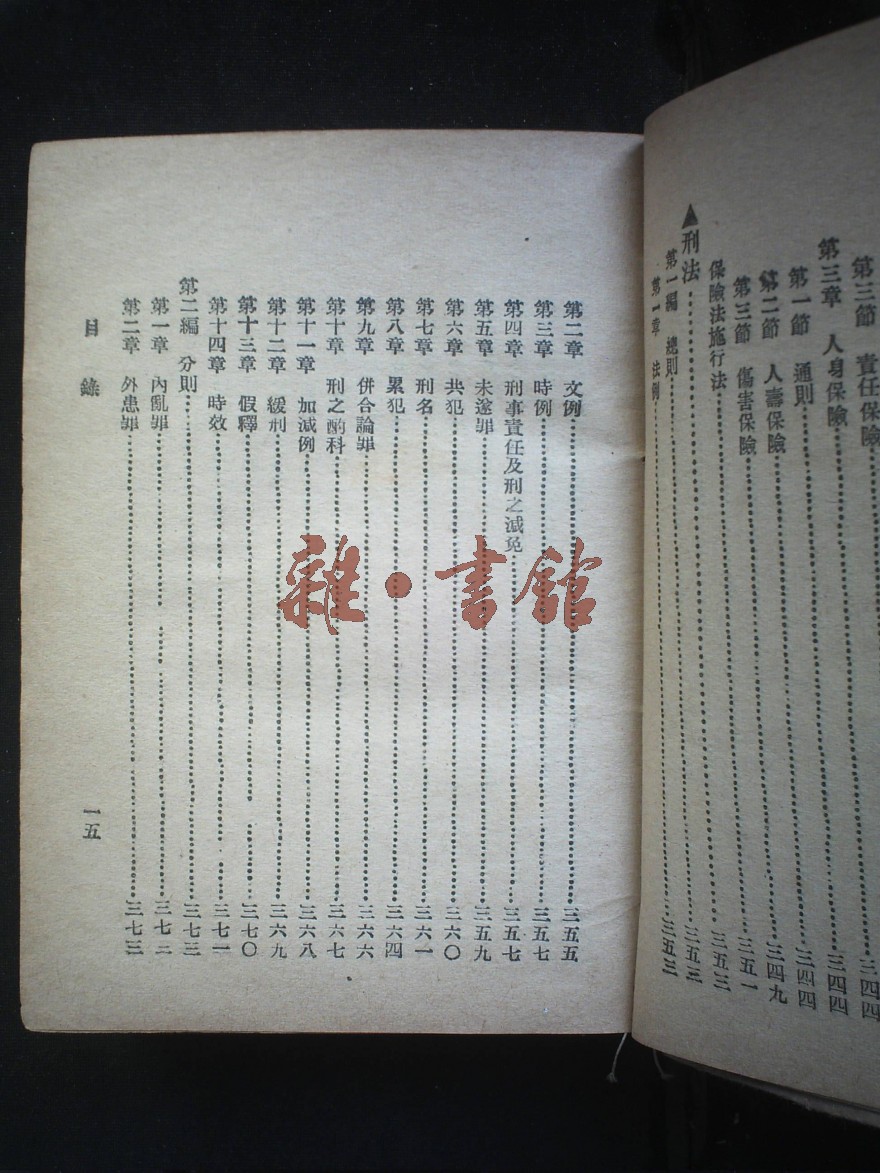 第三節 責任保險 三四四
第三章 人身保險 三四四
第一節 通則 三四四
第二節 人壽保險 三四九
第三節 傷害保險 三五一
保險法施行法 三五三
▲刑法 三五三
第一編 總則
第一章 法例 三五三
第二章 文例 三五五
第三章 時例 三五七
第四章 刑事責任及刑之減免 三五七
第五章 未遂罪 三五九
第六章 共犯 三六〇
第七章 刑名 三六一
第八章 累犯 三六四
第九章 併合論罪 三六六
第十章 刑之酌科 三六七
第十一章 加減例 三六八
第十二章 緩刑 三六九
第十三章 假釋 三七〇
第十四章 時效 三七一
第二編 分則 三七三
第一章 內亂罪 三七二
第二章 外患罪 三七三
目錄
一五
雜·書館